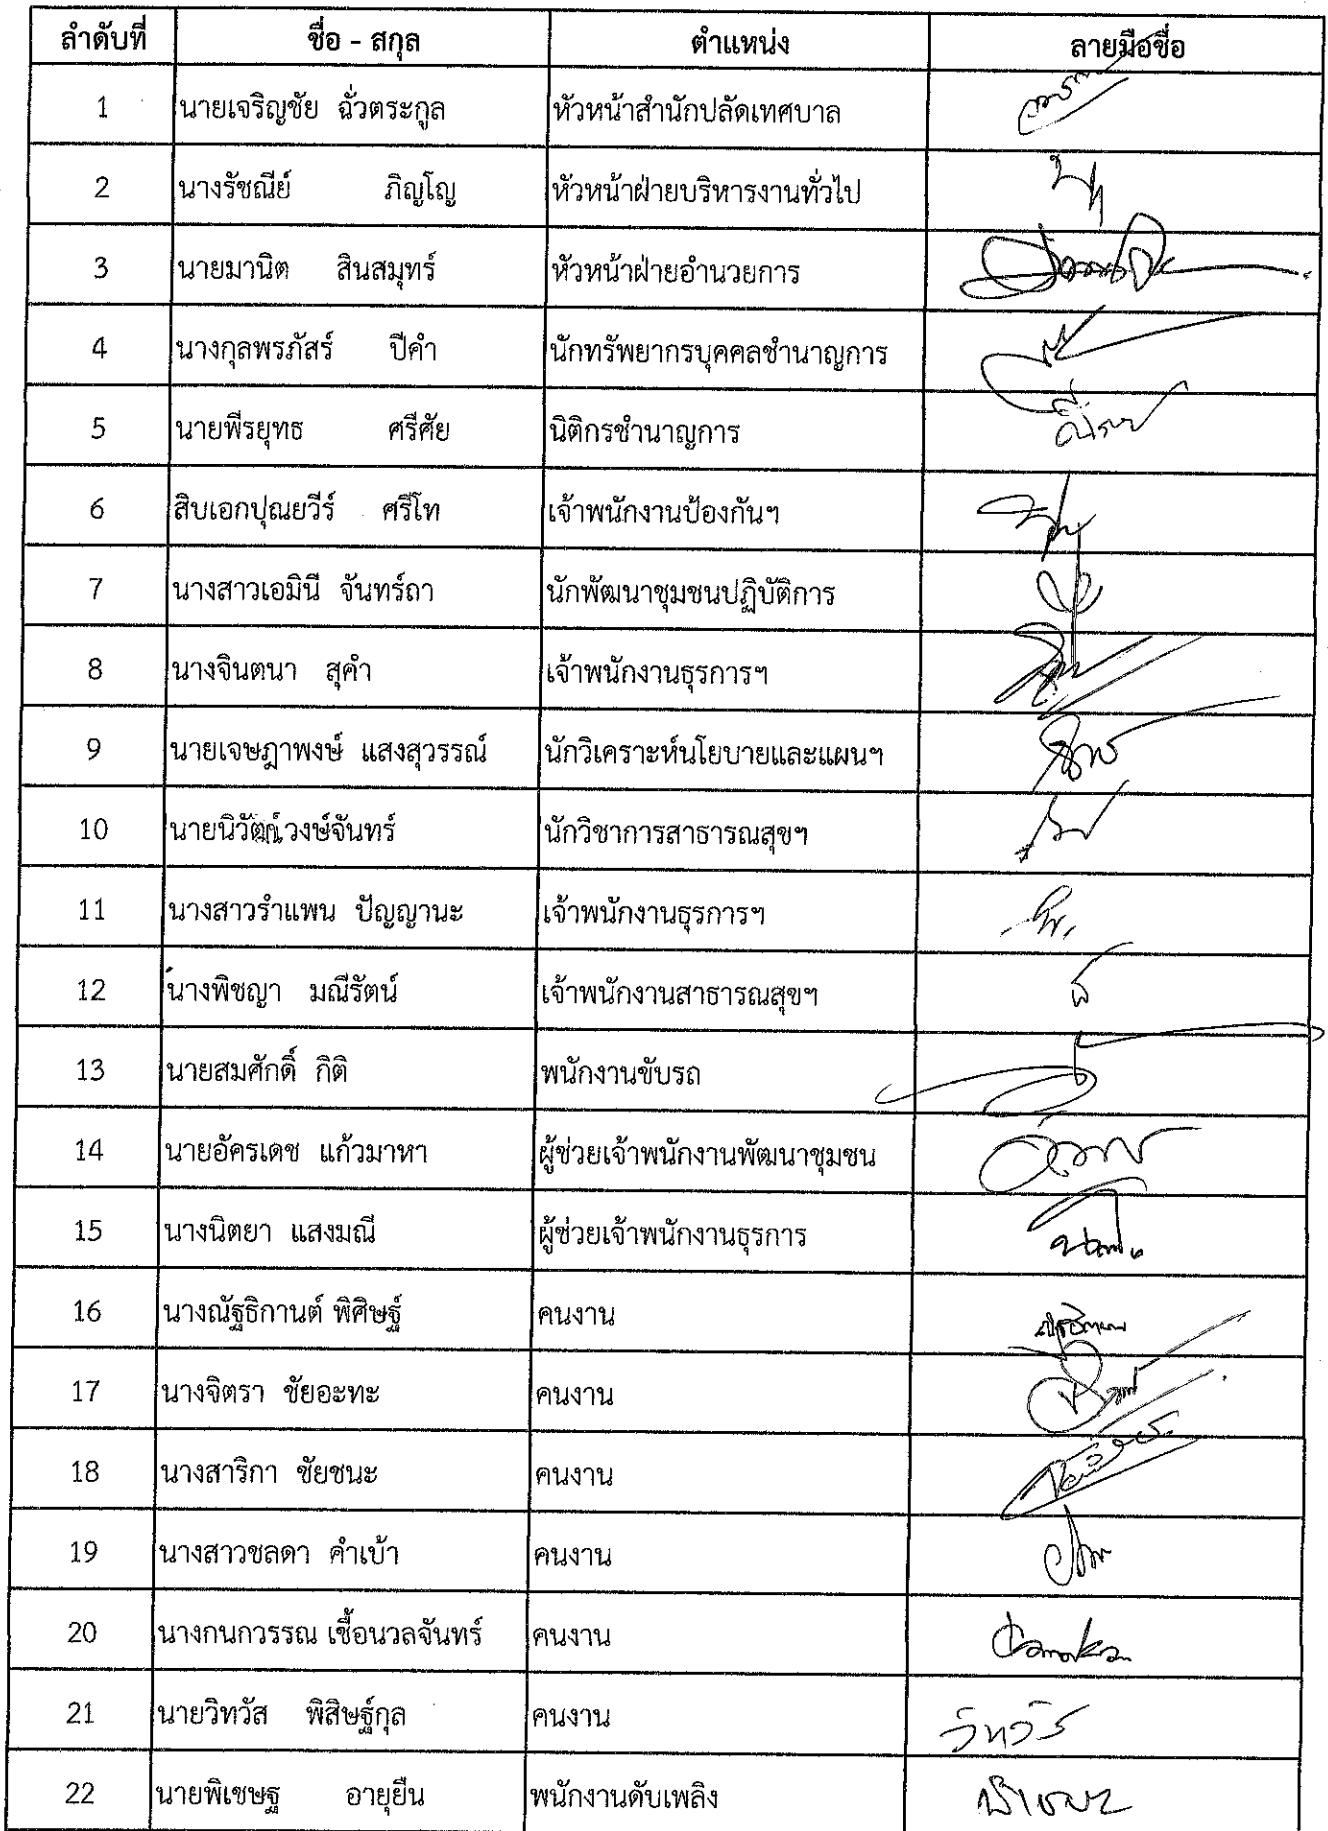 ลำดับที่ ชื่อ - สกุล ตำแหน่ง ลายมือชื่อ
1 นายเจริญชัย ฉั่วตระกูล หัวหน้าสำนักปลัดเทศบาล
2 นางรัชณีย์ ภิญโญ หัวหน้าฝ่ายบริหารงานทั่วไป
3 นายมานิต สินสมุทร์ หัวหน้าฝ่ายอำนวยการ
4 นางกุลพรภัสร์ ปีคำ นักทรัพยากรบุคคลชำนาญการ
5 นายพีรยุทธ ศรีศัย นิติกรชำนาญการ
6 สิบเอกปุณยวีร์ ศรีโท เจ้าพนักงานป้องกันฯ
7 นางสาวเอมินี จันทร์ถา นักพัฒนาชุมชนปฏิบัติการ
8 นางจินตนา สุคำ เจ้าพนักงานธุรการฯ
9 นายเจษฎาพงษ์ แสงสุวรรณ์ นักวิเคราะห์นโยบายและแผนฯ
10 วงษ์จันทร์ นักวิชาการสาธารณสุขฯ
11 นางสาวรำแพน ปัญญานะ เจ้าพนักงานธุรการฯ
12 นางพิชญา มณีรัตน์ เจ้าพนักงานสาธารณสุขฯ
13 นายสมศักดิ์ กิติ พนักงานขับรถ
14 นายอัครเดช แก้วมาหา ผู้ช่วยเจ้าพนักงานพัฒนาชุมชน
15 นางนิตยา แสงมณี ผู้ช่วยเจ้าพนักงานธุรการ
16 นางณัฐธิกานต์ พิศิษฐ์ คนงาน
17 นางจิตรา ชัยอะทะ คนงาน
18 นางสาริกา ชัยชนะ คนงาน
19 นางสาวชลดา คำเบ้า คนงาน
20 นางกนกวรรณ เชื้อนวลจันทร์ คนงาน
21 นายวิทวัส พิสิษฐ์กุล คนงาน
22 นายพิเชษฐ อายุยืน พนักงานดับเพลิง